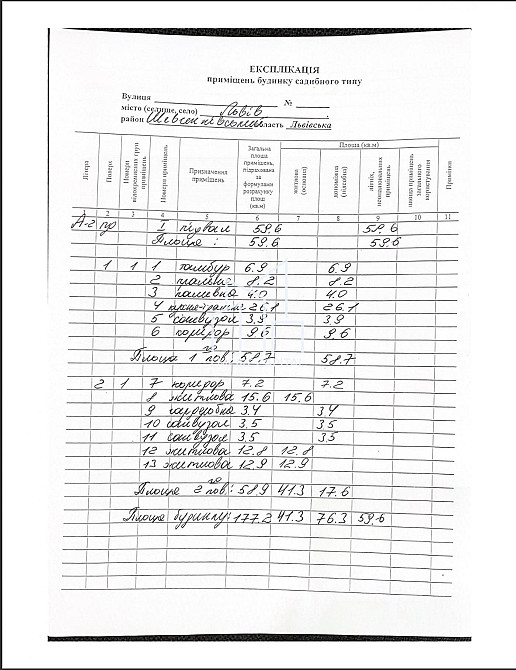 ЕКСПЛІКАЦІЯ
приміщень будинку садибного типу
Вулиця №
місто (селище, село) Львів
район Шевченківський область Львівська
Літера
Поверх
Номери відокремлених груп приміщень
Номери приміщень
Призначення приміщень
Загальна площа приміщень, підрахована за формулами розрахунку площ (кв.м)
Площа (кв.м)
житлова (основна)
допоміжна (підсобна)
літніх, неопалюваних приміщень
площа приміщень загального користування
Примітки
1 2 3 4 5 6 7 8 9 10 11
А-2 пд І підвал 59.6 59.6
Площа : 59.6 59.6
1 1 1 тамбур 6.9 6.9
2 8.2 8.2
3 паливна 4.0 4.0
4 26.1 26.1
5 санвузол 3.9 3.9
6 коридор 9.6 9.6
Площа 1 го пов: 58.7 58.7
2 1 7 коридор 7.2 7.2
8 житлова 15.6 15.6
9 гардеробна 3.4 3.4
10 санвузол 3.5 3.5
11 санвузол 3.5 3.5
12 житлова 12.8 12.8
13 житлова 12.9 12.9
Площа 2 го пов: 58.9 41.3 17.6
Площа будинку: 177.2 41.3 76.3 59.6